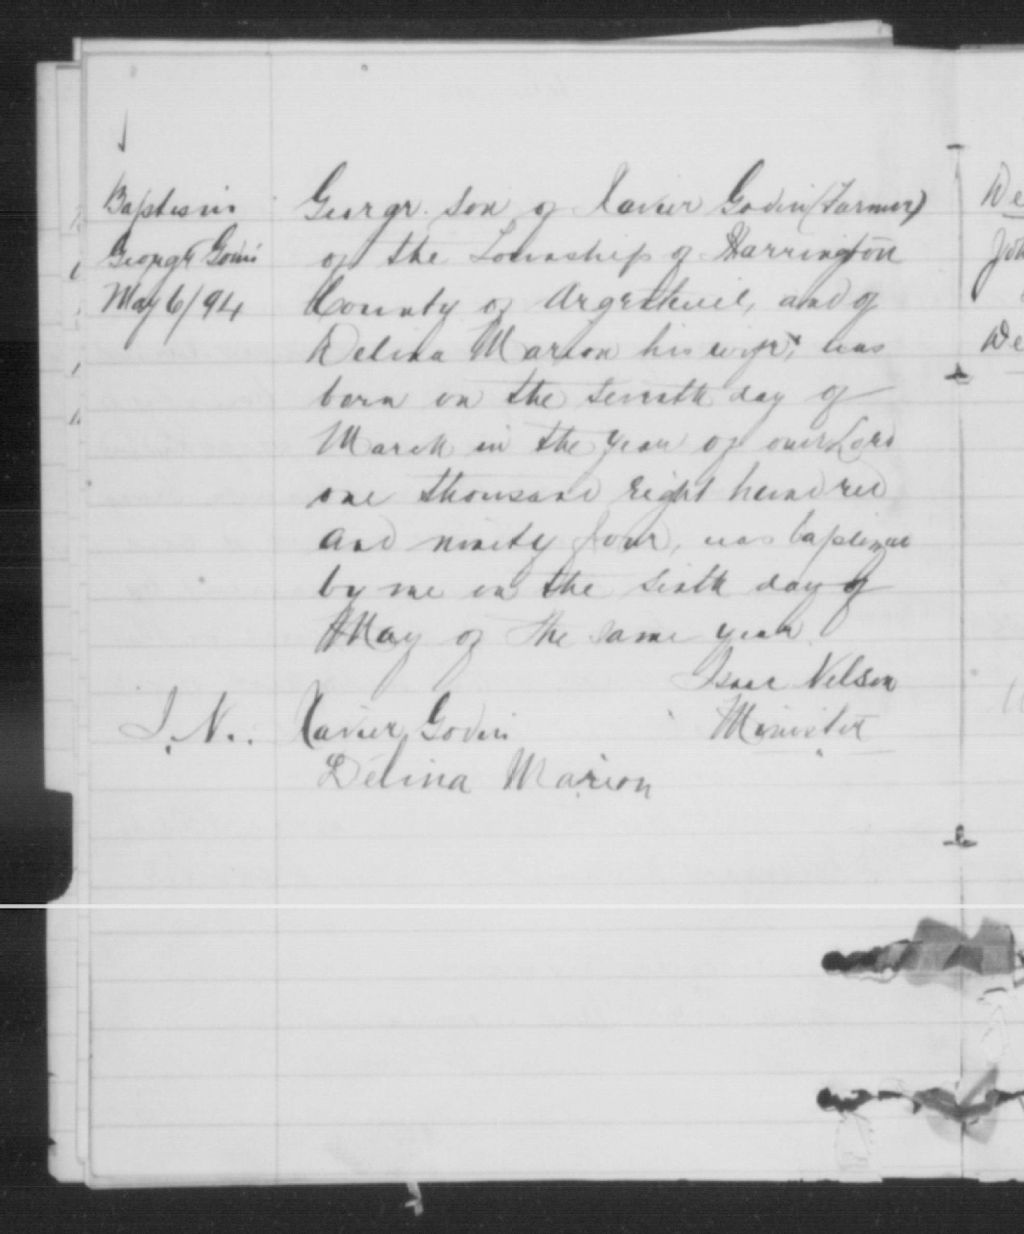 Baptism
George Godin
May 6/94
George son of Xavier Godin (Farmer)
of the Township of Harrington
County of Argenteuil, and of
Delina Marion his wife, was
born on the seventh day of
March in the year of our Lord
one thousand eight hundred
and ninety four, was baptized
by me on the sixth day of
May of the same year
Isaac Nelson
Minister
I. N.
Xavier Godin
Delina Marion
De
Joh
De